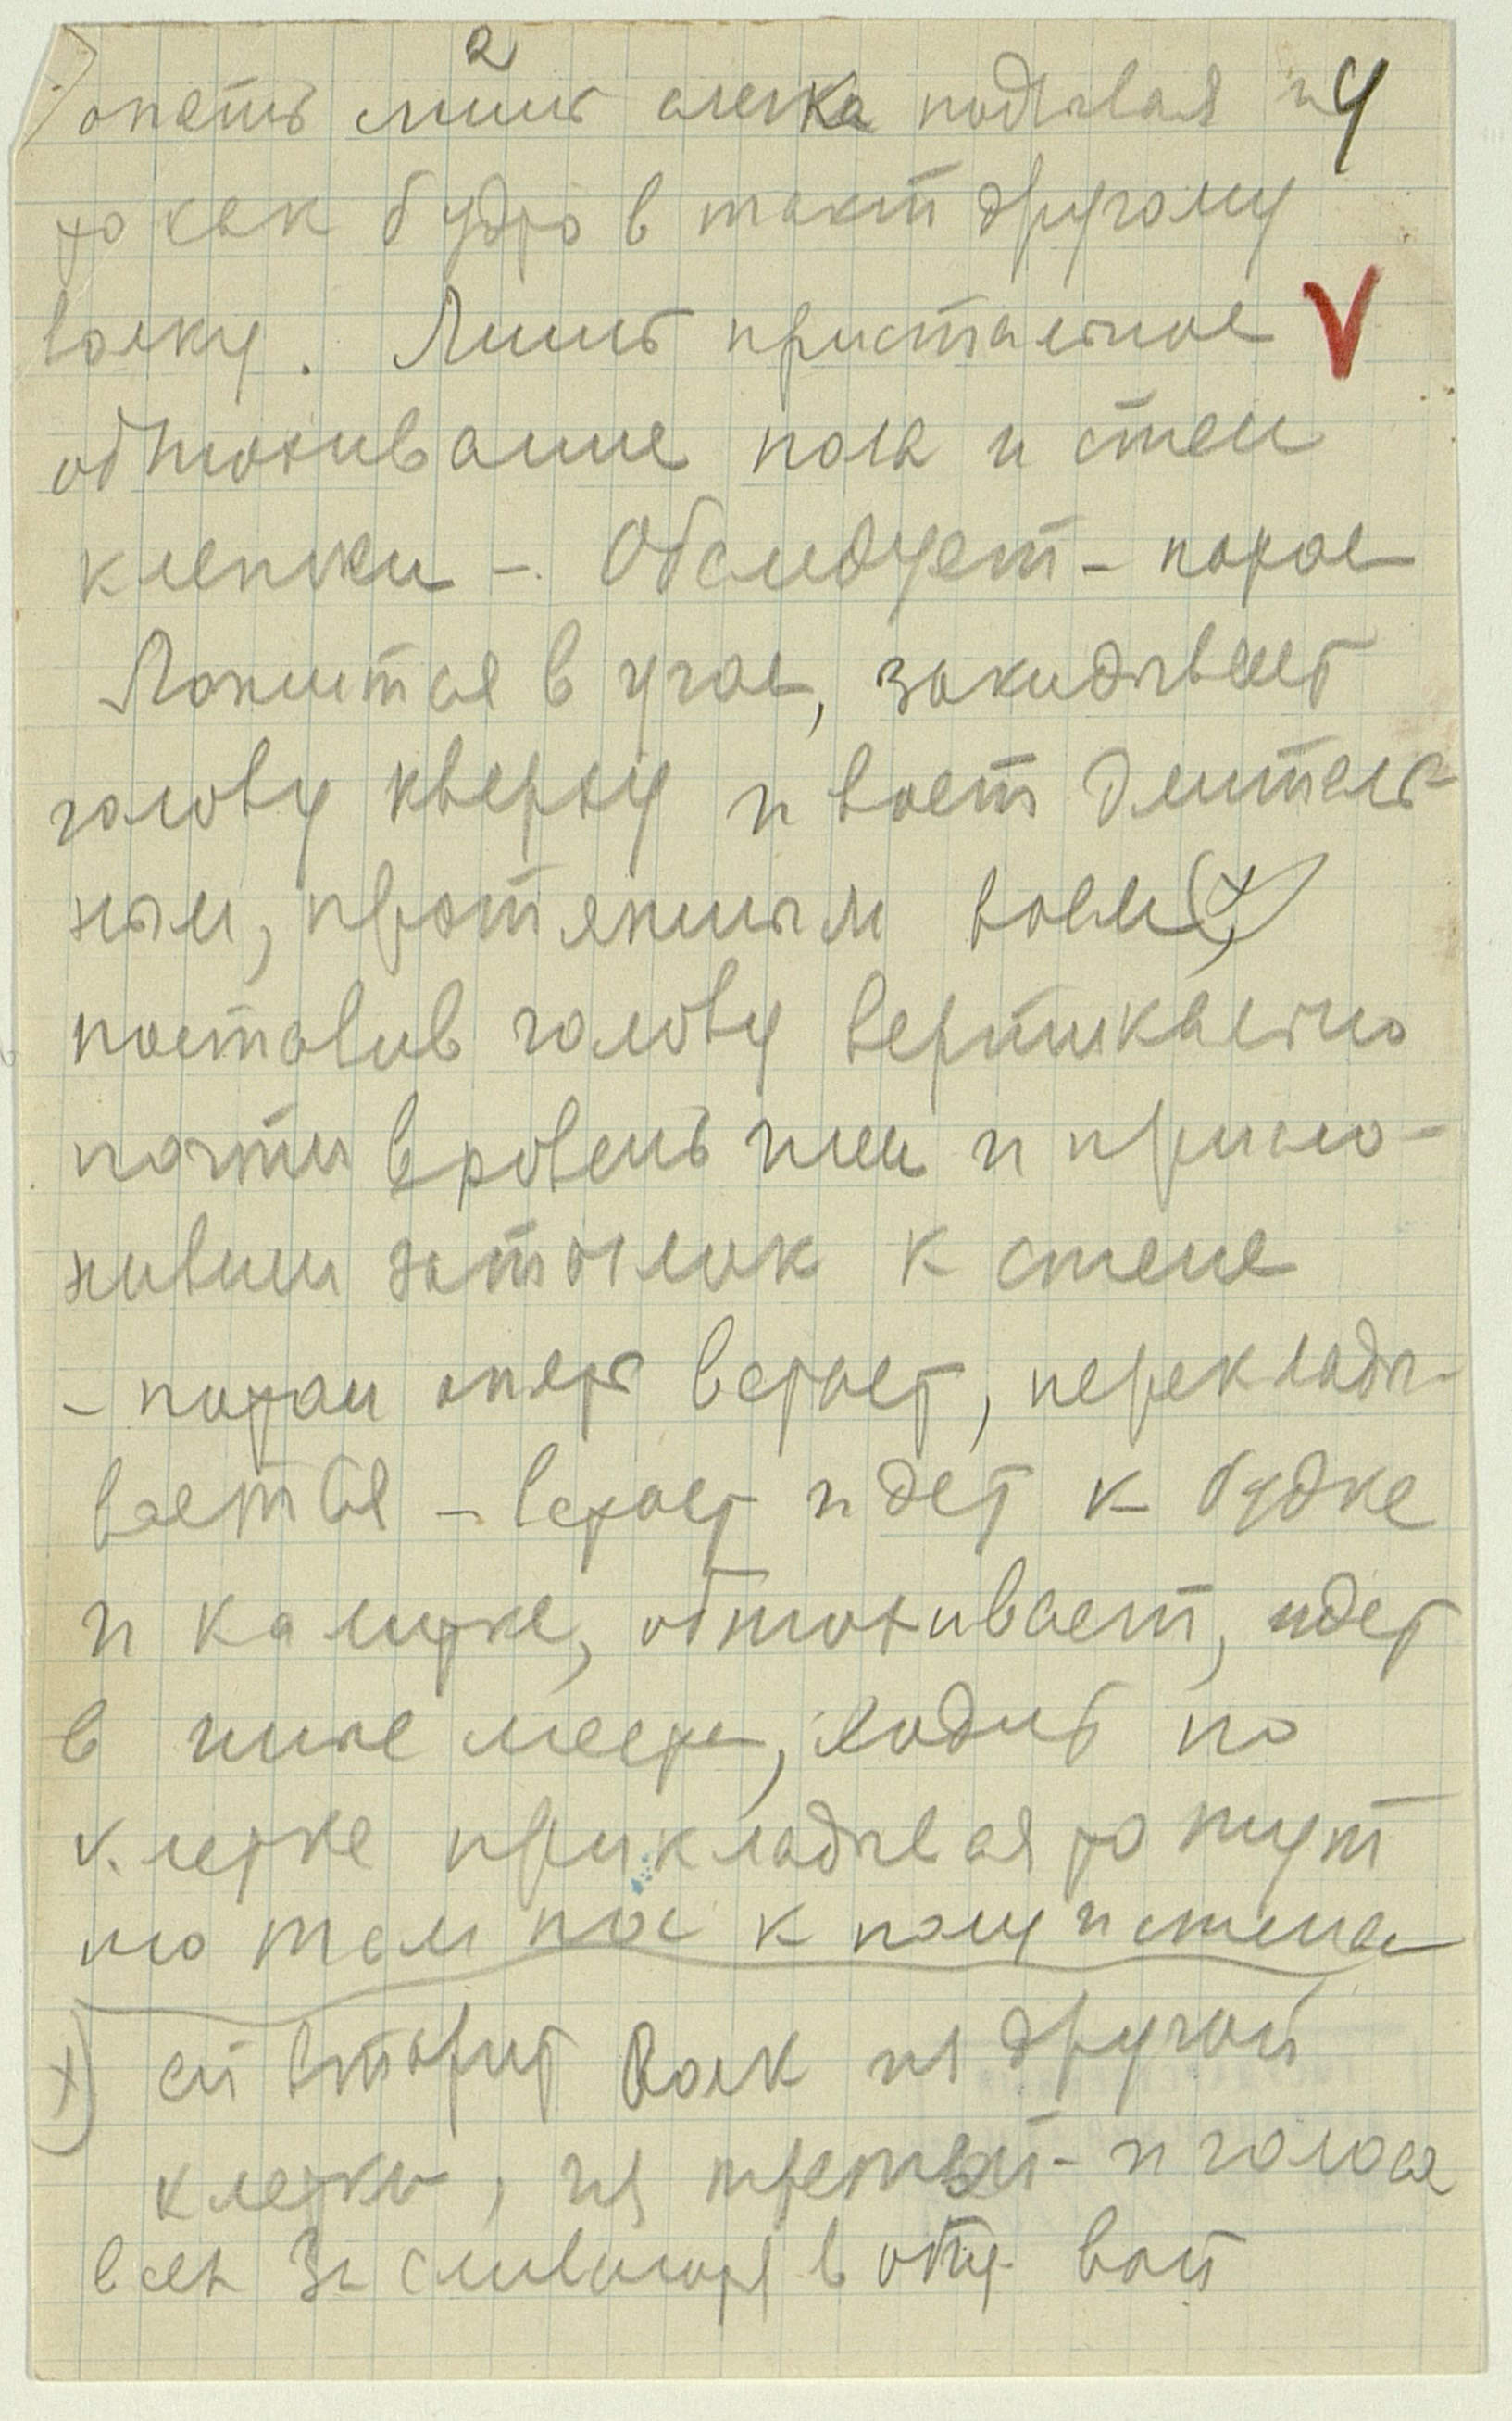 2
опять лишь слегка подывая и 4
то как будто в такт другому
волку. Лишь пристальное V
обнюхивание пола и стен
клетки -. Обследует - пол
Ложится в угол, закидывает
голову кверху и воет длитель-
ным, протяжным воем (+)
поставив голову вертикально
почти вровень шеи и присло-
нивши затылок к стене
- потом опять встает, переклады-
вается - встает идет к будке
и калитке, обнюхивает, идет
в иные места, ходит по
клетке прикладывая то тут
то там нос к полу и стенам
+) ей вторит волк из другой
клетки, из третьей - и голоса
всех 3х сливаются в общ. вой